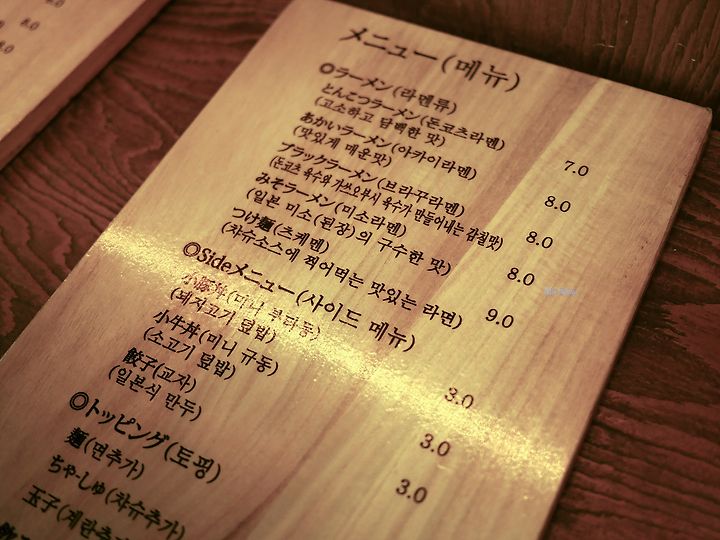 8.0
8.0
8.0
メニュー(메뉴)
◎ラーメン(라멘류)
とんこつラーメン(돈코츠라멘) 7.0
(고소하고 담백한 맛)
あかいラーメン(아카이라멘) 8.0
(맛있게 매운맛)
ブラックラーメン(브라꾸라멘) 8.0
(돈코츠 육수와 가쓰오부시 육수가 만들어내는 감칠맛)
みそラーメン(미소라멘) 8.0
(일본 미소(된장)의 구수한 맛)
つけ麵(츠케멘) 9.0
(차슈소스에 찍어먹는 맛있는 라면)
◎Sideメニュー(사이드 메뉴)
小豚丼(미니 부타동) 3.0
(돼지고기 덮밥)
小牛丼(미니 규동) 3.0
(소고기 덮밥)
餃子(교자) 3.0
(일본식 만두)
◎トッピング(토핑)
麵(면추가)
ちゃ-しゅ(차슈추가)
玉子(계란추가)